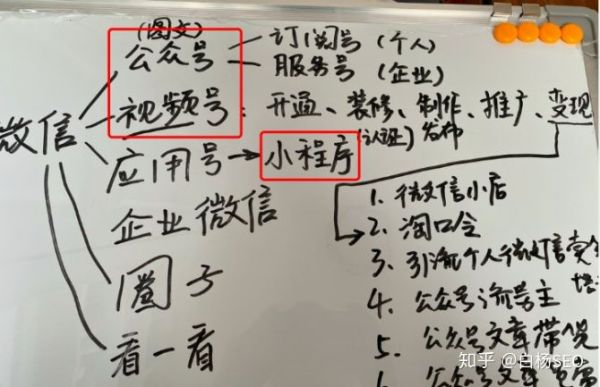 (图文)
公众号 — 订阅号 (个人)
服务号 (企业)
微信 — 视频号：开通、装修、制作、推广、变现
(认证) 发布
应用号 → 小程序
企业微信
圈子
看一看
1. 微信小店
2. 淘口令
3. 引流个人微信卖
4. 公众号流量主
5. 公众号文章带
公众号文章
知乎 @白杨SEO